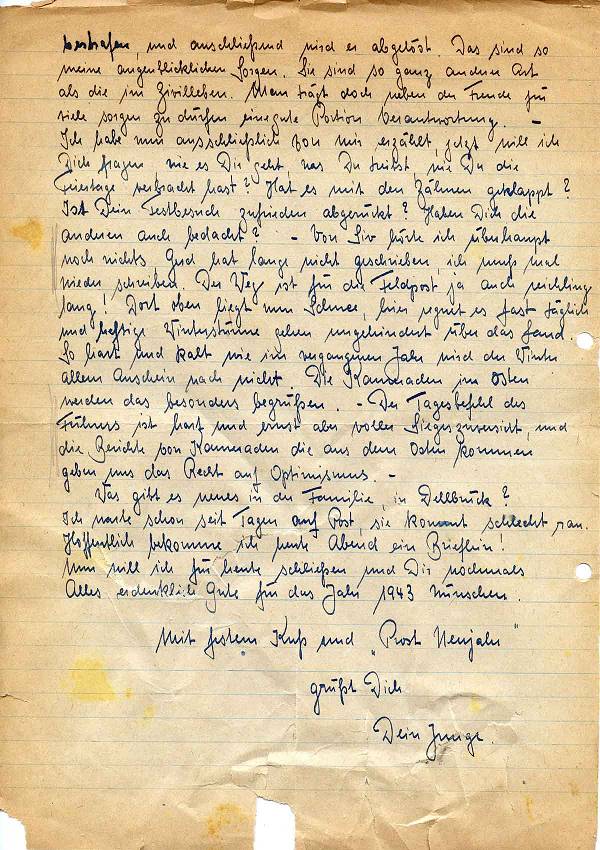 bestrafen, und anschließend wird er abgelöst. Das sind so
meine augenblicklichen Sorgen. Sie sind so ganz anderer Art
als die im Zivilleben. Man trägt doch neben der Freude für
viele sorgen zu dürfen eine gute Portion Verantwortung. –
Ich habe nun ausschließlich von mir erzählt, jetzt will ich
Dich fragen wie es Dir geht, was Du treibst, wie Du die
Feiertage verbracht hast? Hat es mit den Zähnen geklappt?
Ist Dein Festbesuch zufrieden abgerückt? Haben Dich die
anderen auch bedacht? – Von Siv hörte ich überhaupt
noch nichts. Gud hat lange nicht geschrieben, ich muß mal
wieder schreiben. Der Weg ist für die Feldpost ja auch reichling
lang! Dort oben liegt nun Schnee, hier regnet es fast täglich
und heftige Winterstürme gehen ungehindert über das Land.
So hart und kalt wie im vergangenen Jahr wird der Winter
allem Anschein nach nicht. Die Kameraden im Osten
werden das besonders begrüßen. – Der Tagesbefehl des
Führers ist hart und ernst aber voller Siegeszuversicht, und
die Berichte von Kameraden die aus dem Osten kommen
geben uns das Recht auf Optimismus. –
Was gibt es neues in der Familie, in Dellbrück?
Ich warte schon seit Tagen auf Post, sie kommt schlecht ran.
Hoffentlich bekomme ich heute Abend ein Brieflein!
Nun will ich für heute schließen und Dir nochmals
Alles erdenklich Gute für das Jahr 1943 wünschen.
Mit festem Kuß und „Prost Neujahr"
grüßt Dich
Dein Junge.